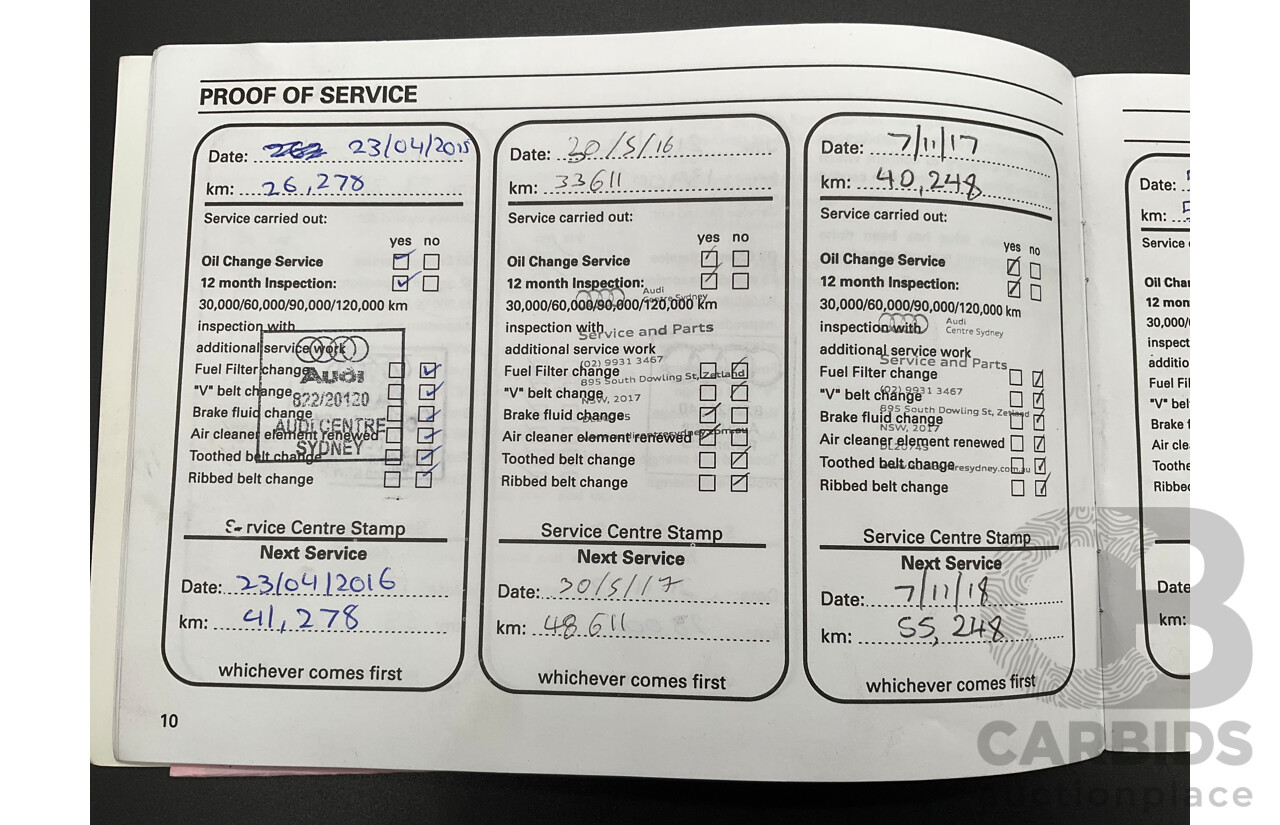 PROOF OF SERVICE
Date: 23/04/2015
km: 26,278
Service carried out:
yes no
Oil Change Service
12 month Inspection:
30,000/60,000/90,000/120,000 km
inspection with
additional service work
Fuel Filter change
"V" belt change
Brake fluid change
Air cleaner element renewed
Toothed belt change
Ribbed belt change
Audi
822/20120
AUDI CENTRE
SYDNEY
Service Centre Stamp
Next Service
Date: 23/04/2016
km: 41,278
whichever comes first
Date: 20/5/16
km: 33611
Service carried out:
yes no
Oil Change Service
12 month Inspection:
30,000/60,000/90,000/120,000 km
inspection with
additional service work
Fuel Filter change
"V" belt change
Brake fluid change
Air cleaner element renewed
Toothed belt change
Ribbed belt change
Audi
Centre Sydney
Service and Parts
(02) 9931 3467
895 South Dowling St, Zetland
NSW, 2017
Service Centre Stamp
Next Service
Date: 30/5/17
km: 48611
whichever comes first
Date: 7/11/17
km: 40,248
Service carried out:
yes no
Oil Change Service
12 month Inspection:
30,000/60,000/90,000/120,000 km
inspection with
additional service work
Fuel Filter change
"V" belt change
Brake fluid change
Air cleaner element renewed
Toothed belt change
Ribbed belt change
Audi
Centre Sydney
Service and Parts
(02) 9931 3467
895 South Dowling St, Zetland
NSW, 2017
DL20745
Service Centre Stamp
Next Service
Date: 7/11/18
km: 55,248
whichever comes first
10
Date:
km:
Service
Oil Char
12 mon
30,000/
inspect
additio
Fuel Fil
"V" bel
Brake f
Air cle
Toothe
Ribbed
Date
km:
CARBIDS